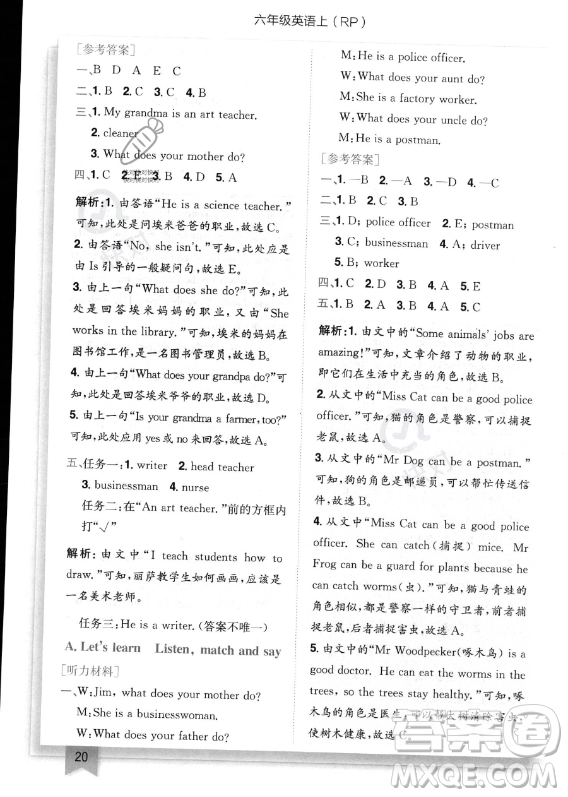 六年级英语上（RP）
[参考答案]
一、B D A E C
二、1. B 2. B 3. C 4. B
三、1. My grandma is an art teacher.
2. cleaner
3. What does your mother do?
四、1. C 2. E 3. B 4. D 5. A
解析：1. 由答语“He is a science teacher.”
可知，此处是问埃米爸爸的职业，故选 C。
2. 由答语“No, she isn't.”可知，此处应是
由 Is 引导的一般疑问句，故选 E。
3. 由上一句“What does she do?”可知，此
处是回答埃米妈妈的职业，又由“She
works in the library.”可知，埃米的妈妈在
图书馆工作，是一名图书管理员，故选 B。
4. 由上一句“What does your grandpa do?”
可知，此处是回答埃米爷爷的职业，故选 D。
5. 由上一句“Is your grandma a farmer, too?”
可知，此处应用 yes 或 no 来回答，故选 A。
五、任务一：1. writer 2. head teacher
3. businessman 4. nurse
任务二：在“An art teacher.”前的方框内
打“√”
解析：由文中“I teach students how to
draw.”可知，丽萨教学生如何画画，应该是
一名美术老师。
任务三：He is a writer.（答案不唯一）
A. Let's learn Listen, match and say
[听力材料]
一、W: Jim, what does your mother do?
M: She is a businesswoman.
W: What does your father do?
20
M: He is a police officer.
W: What does your aunt do?
M: She is a factory worker.
W: What does your uncle do?
M: He is a postman.
[参考答案]
一、1. —B 2. —A 3. —D 4. —C
二、1. D; police officer 2. E; postman
3. C; businessman 4. A; driver
5. B; worker
四、1. C 2. B 3. D 4. A 5. E
五、1. B 2. A 3. B 4. C 5. A
解析：1. 由文中的“Some animals' jobs are
amazing!”可知，文章介绍了动物的职业，
即它们在生活中充当的角色，故选 B。
2. 从文中的“Miss Cat can be a good police
officer.”可知，猫的角色是警察，可以捕捉
老鼠，故选 A。
3. 从文中的“Mr Dog can be a postman.”可
知，狗的角色是邮递员，可以帮忙传送信
件，故选 B。
4. 从文中的“Miss Cat can be a good police
officer. She can catch（捕捉） mice. Mr
Frog can be a guard for plants because he
can catch worms（虫）.”可知，猫与青蛙的
角色，都是警察一样的守卫者，前者捕捉
老鼠，后者捕捉害虫，故选 C。
5. 由文中的“Mr Woodpecker（啄木鸟） is a
good doctor. He can eat the worms in the
trees, so the trees stay healthy.”可知，啄
木鸟的角色是医生，可以帮大树清除害虫，
使树木变得健康，故选 A。
答案圈
MXQE.COM